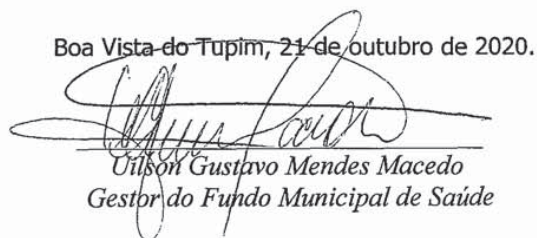 Boa Vista do Tupim, 21 de outubro de 2020.
Uilson Gustavo Mendes Macedo
Gestor do Fundo Municipal de Saúde